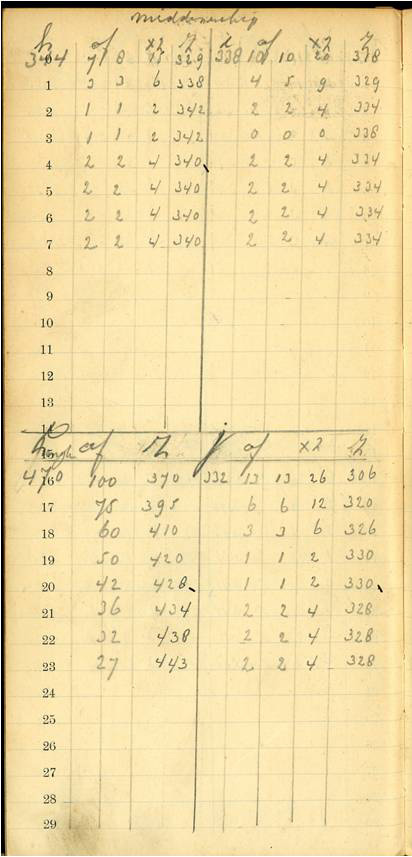 0 344 7 8 15 329 338 10 10 20 318
1 3 3 6 338 4 5 9 329
2 1 1 2 342 2 2 4 334
3 1 1 2 342 0 0 0 338
4 2 2 4 340 2 2 4 334
5 2 2 4 340 2 2 4 334
6 2 2 4 340 2 2 4 334
7 2 2 4 340 2 2 4 334
8
9
10
11
12
13
14
15 of of x2
16 470 100 370 332 13 13 26 306
17 75 395 6 6 12 320
18 60 410 3 3 6 326
19 50 420 1 1 2 330
20 42 428 1 1 2 330
21 36 434 2 2 4 328
22 32 438 2 2 4 328
23 27 443 2 2 4 328
24
25
26
27
28
29